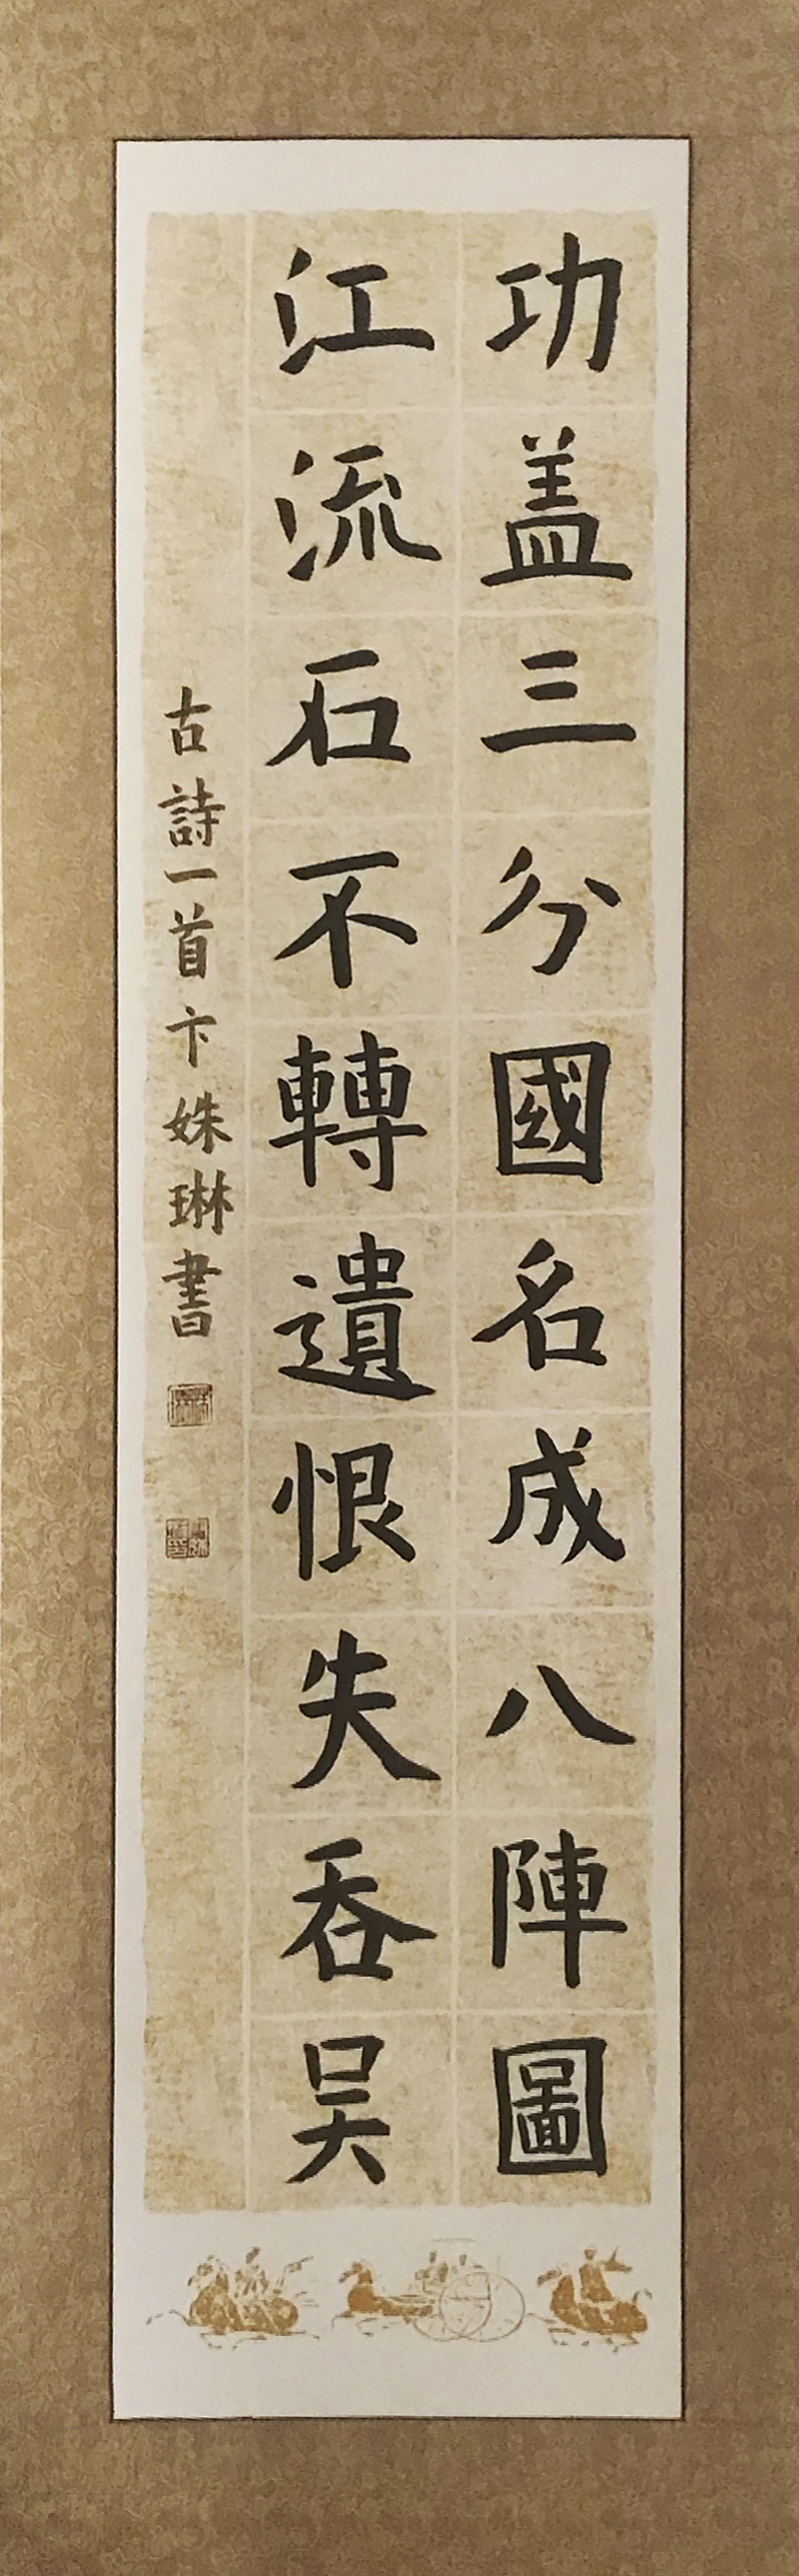 功盖三分國名成八陣圖
江流石不轉遺恨失吞吴
古詩一首卞姝琳書